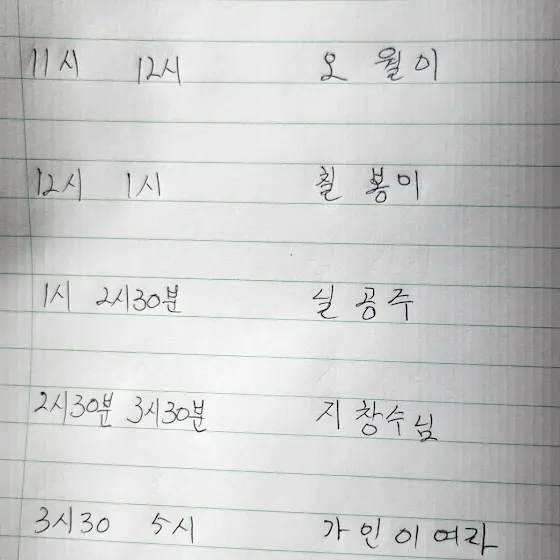 11시 12시 오 월이
12시 1시 칠 봉이
1시 2시30분 실 공주
2시30분 3시30분 지 창수님
3시30 5시 가인이여라